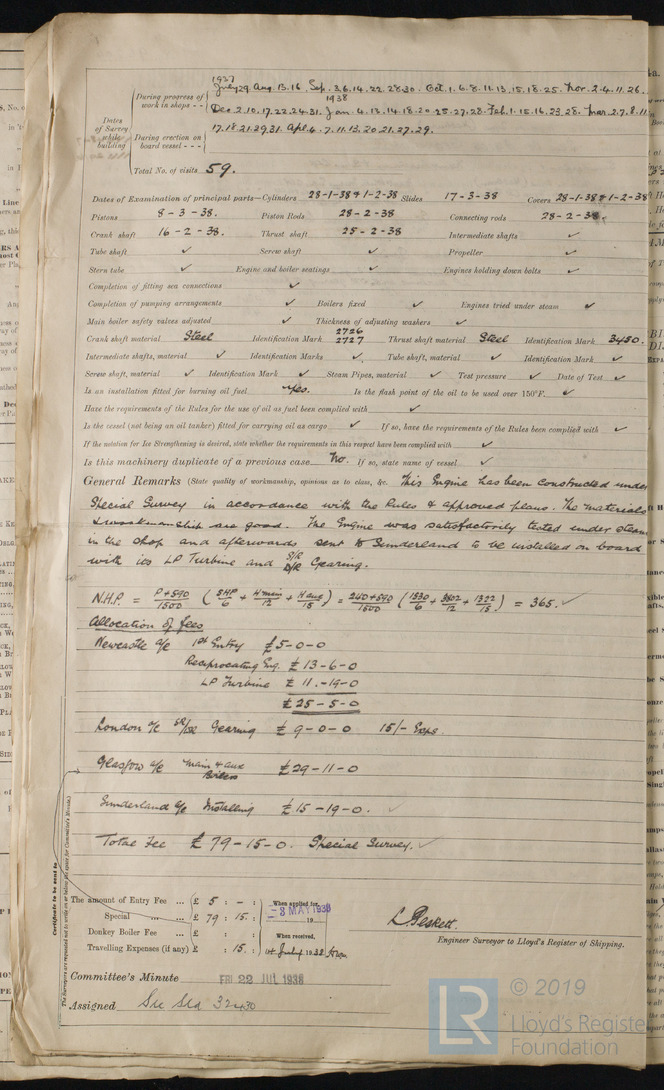 1937
July 29 Aug. 13.16 Sep. 3.6.14.22.28.30. Oct. 1.6.8.11.13.15.18.25. Nov. 2.4.11.26.
During progress of work in shops - -
1938
Dec. 2.10.17.22.24.31. Jan. 4.13.14.18.20.25.27.28. Feb. 1.15.16.23.28. Mar. 2.7.8.11
Dates of Survey while building
During erection on board vessel - - -
17.18.21.29.31. Apl. 4.7.11.13.20.21.27.29.
Total No. of visits 59.
Dates of Examination of principal parts—Cylinders 28-1-38 & 1-2-38 Slides 17-3-38 Covers 28-1-38 & 1-2-38
Pistons 8-3-38. Piston Rods 28-2-38 Connecting rods 28-2-38.
Crank shaft 16-2-38. Thrust shaft 25-2-38 Intermediate shafts ✓
Tube shaft ✓ Screw shaft ✓ Propeller ✓
Stern tube ✓ Engine and boiler seatings ✓ Engines holding down bolts ✓
Completion of fitting sea connections ✓
Completion of pumping arrangements ✓ Boilers fixed ✓ Engines tried under steam ✓
Main boiler safety valves adjusted ✓ Thickness of adjusting washers ✓
Crank shaft material Steel Identification Mark 2726 2727 Thrust shaft material Steel Identification Mark 3450.
Intermediate shafts, material ✓ Identification Marks ✓ Tube shaft, material ✓ Identification Mark ✓
Screw shaft, material ✓ Identification Mark ✓ Steam Pipes, material ✓ Test pressure ✓ Date of Test ✓
Is an installation fitted for burning oil fuel Yes. Is the flash point of the oil to be used over 150°F. ✓
Have the requirements of the Rules for the use of oil as fuel been complied with ✓
Is the vessel (not being an oil tanker) fitted for carrying oil as cargo ✓ If so, have the requirements of the Rules been complied with ✓
If the notation for Ice Strengthening is desired, state whether the requirements in this respect have been complied with ✓
Is this machinery duplicate of a previous case No. If so, state name of vessel ✓
General Remarks (State quality of workmanship, opinions as to class, &c. This Engine has been constructed under
Special Survey in accordance with the Rules & approved plans. The materials
& workmanship are good. The Engine was satisfactorily tested under steam
in the shop and afterwards sent to Sunderland to be installed on board
with its LP Turbine and S/R D/R Gearing.
N.H.P. = P+590/1500 (SHP/6 + H main/12 + H aux/15) = 240+590/1500 (1530/6 + 3402/12 + 1322/15) = 365. ✓
Allocation of fees
Newcastle a/c 1st Entry £5-0-0
Reciprocating Eng. £13-6-0
LP Turbine £11-19-0
£25-5-0
London a/c SR/DR Gearing £9-0-0 15/- Exps.
Glasgow a/c Main & Aux Boilers £29-11-0
Sunderland a/c Installing £15-19-0. ✓
Total Fee £79-15-0. Special Survey. ✓
Certificate to be sent to
(The Surveyors are requested not to write on or below the space for Committee's Minute.)
The amount of Entry Fee ... £ 5 : - : When applied for,
Special ... ... £ 79 : 15 : -3 MAY 1938 19
Donkey Boiler Fee ... £ : : When received,
Travelling Expenses (if any) £ : 15. : July 1938
L. Peskett.
Engineer Surveyor to Lloyd's Register of Shipping.
Committee's Minute FRI 22 JUL 1938
Assigned See Sld 32430
LR © 2019
Lloyd's Register
Foundation